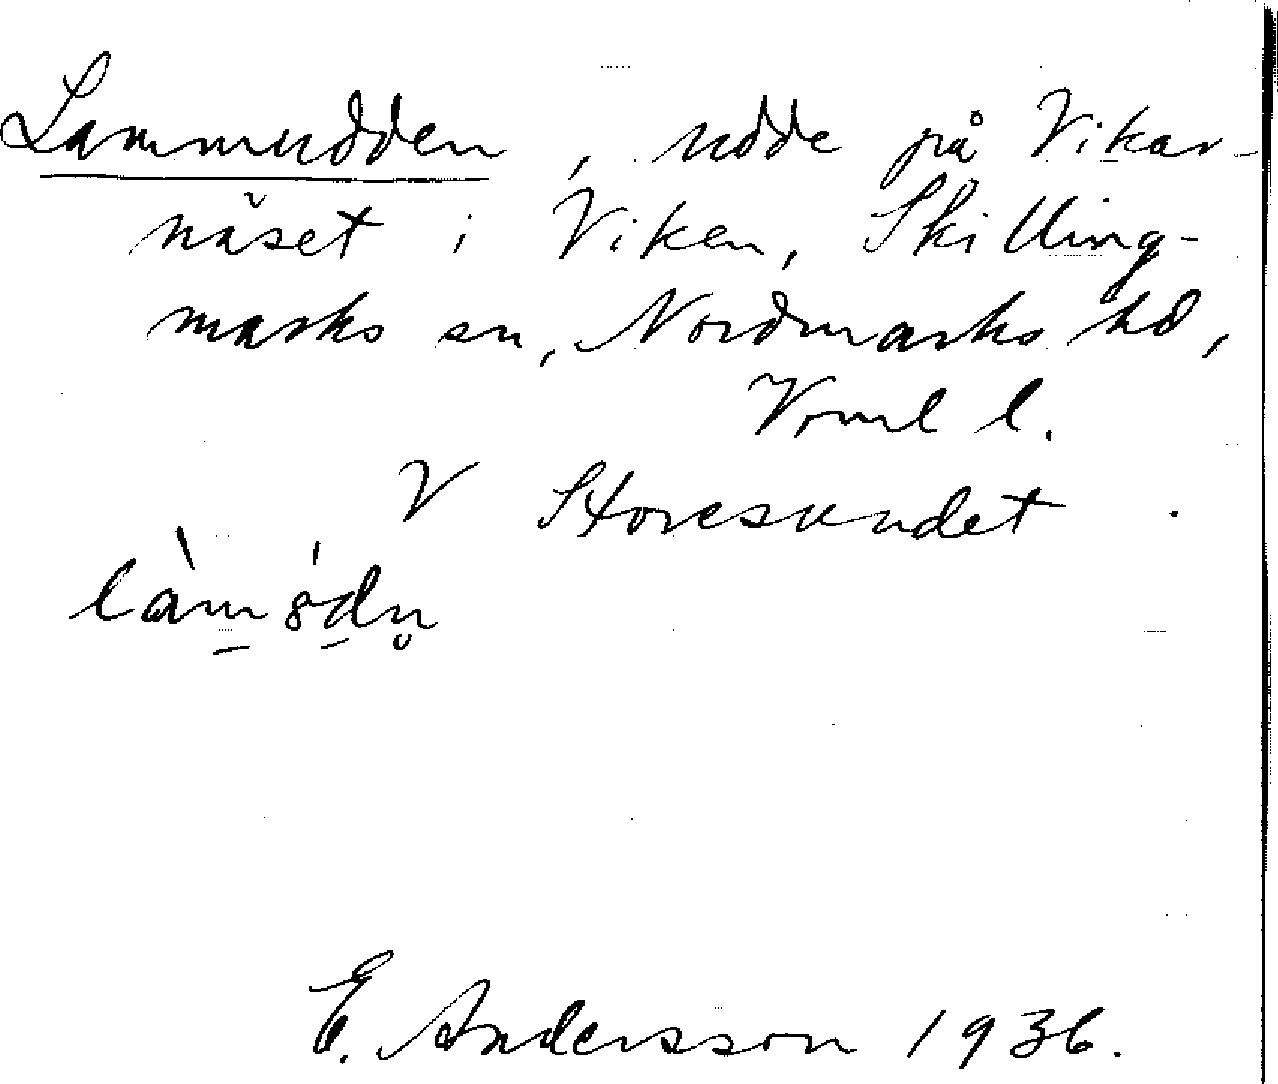 Lammudden, udde på Vikar-
näset i Viken, Skilling-
marks sn, Nordmarks hd,
Vrml l.
V Storesundet
E. Andersson 1936.